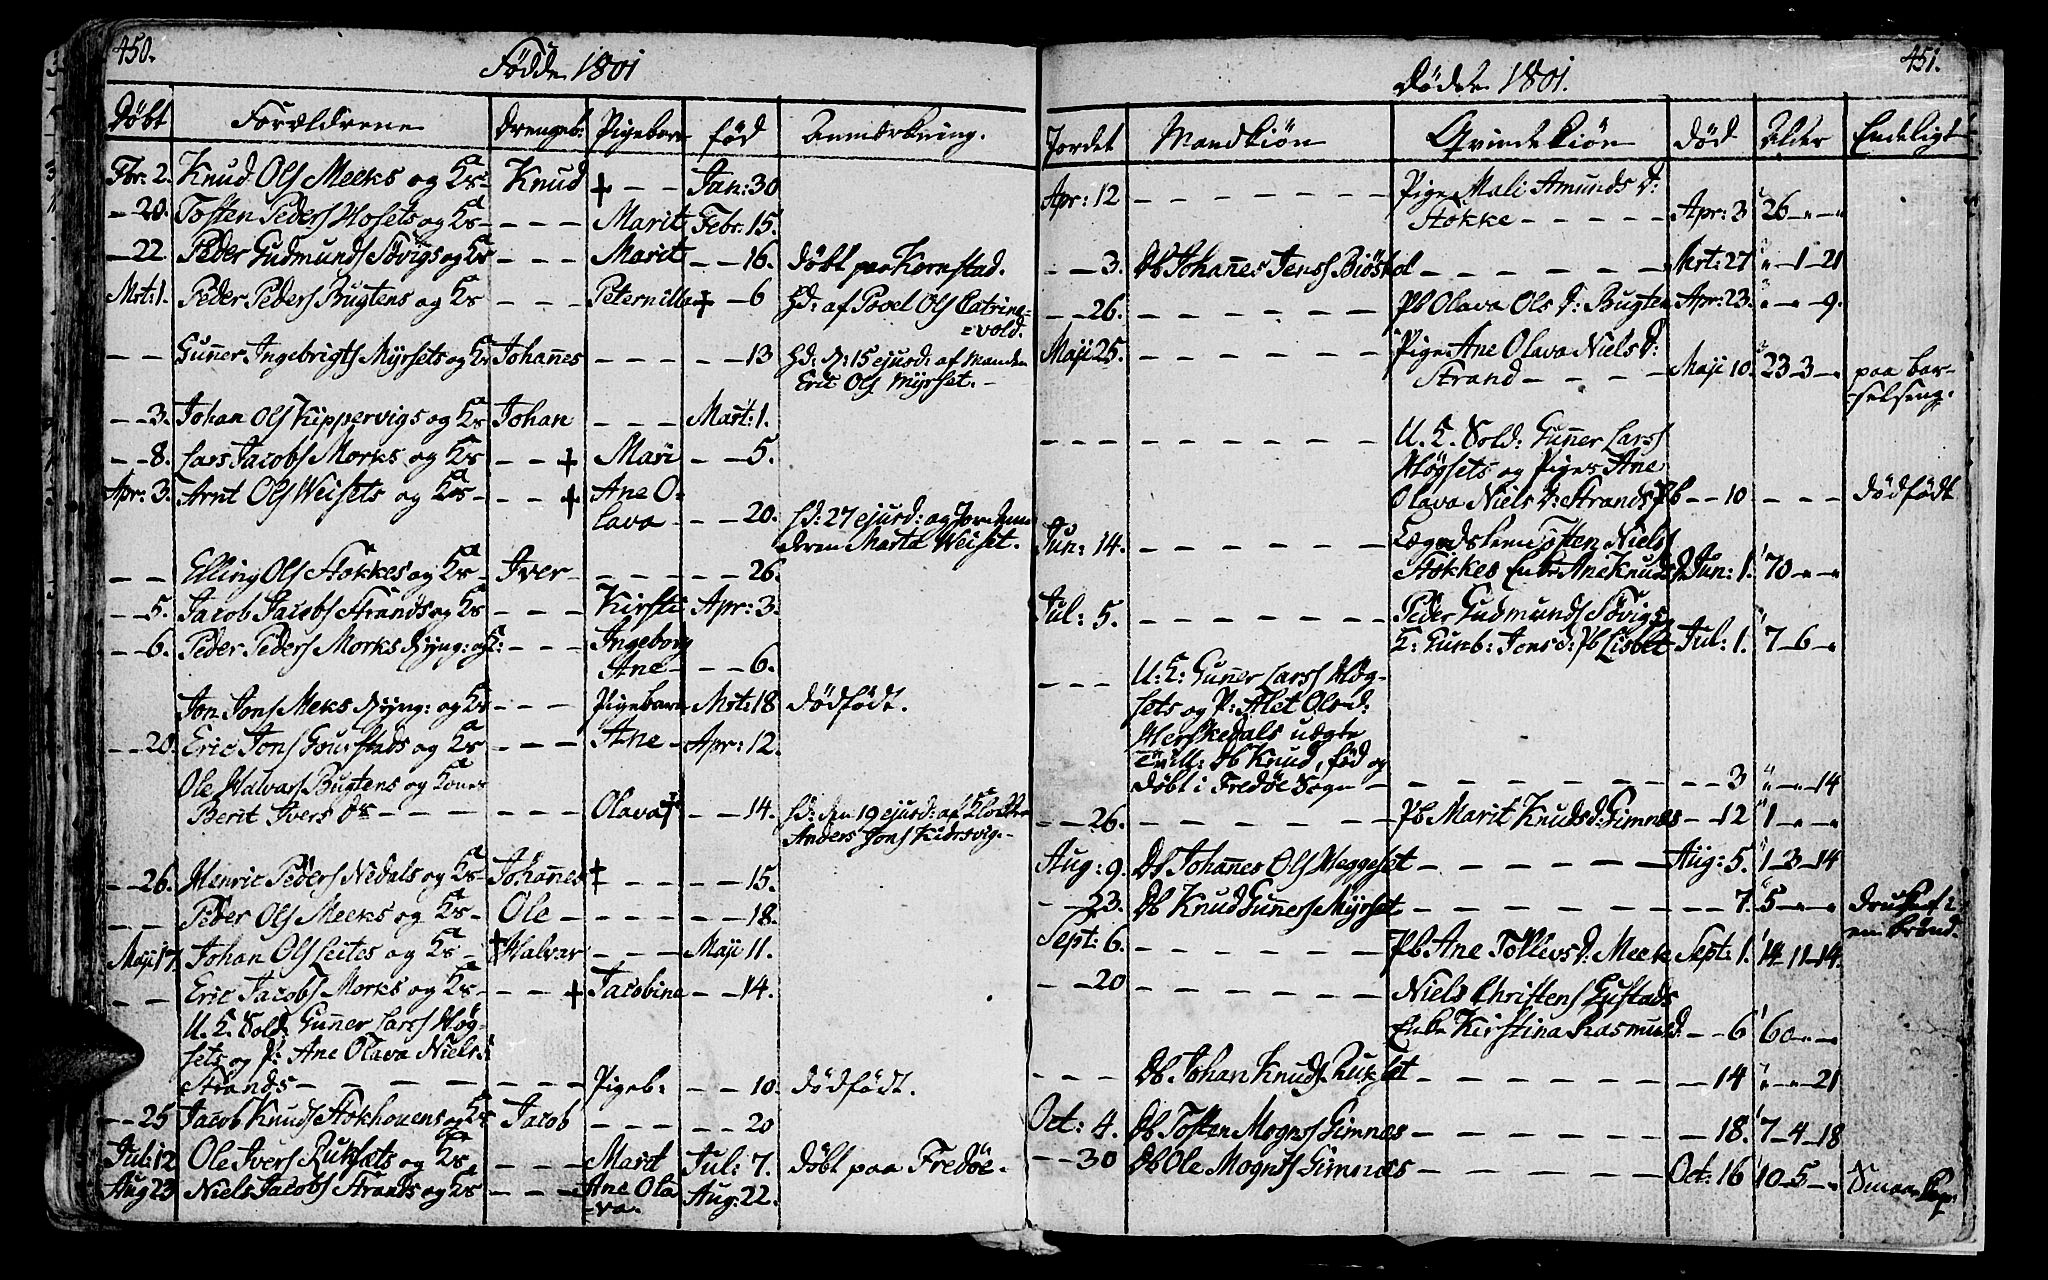 450.
Fødde 1801
Døbt Forældrene Drengeb: Pigebørn fød Anmærkning.
Fbr: 2. Knud Ols Meeks og Ks - Knud + - - Jan: 30
- 20. Tosten Peders Hosets og Ks - - - - Marit Febr: 15.
- 22. Peder Gudmunds Søvigs og Ks - - - Marit - - 16. Døbt paa Kornstad.
Mrt: 1. Peder Peders Bugtens og Ks - - - Peternilla + - 6 Hd: af Povel Ols Catrine=
=vold.
- - Guñer Ingebrigts Myrsets og Ks Johañes - - - - - 13 Hd: d: 15 ejusd: af Manden
Eric Ols Myrset. -
- - 3. Johan Ols Kippervigs og Ks Johan - - - Mart: 1.
- - 8. Lars Jacobs Morks og Ks - - + Mari - - 5.
Apr: 3. Arnt Ols Weisets og Ks - - - + Ane O=
lava - - - 20. Hd: 27 ejusd: og Jordemo
deren Marta Weiset.
- - Elling Ols Stokkes og Ks - Iver - - - - - - 26.
- - 5. Jacob Jacobs Strands og Ks - - - Kirsti Apr: 3.
- - 6. Peder Peders Morks Ryng: og K: - - - Ingeborg
Ane - - - 6.
Jon Jons Meeks Ryng: og Ks - - - Pigebarn Mrt: 18 Dødfødt.
- - 20. Eric Jons Gustads og Ks - - - Ane - Apr: 12.
Ole Halvars Bugtens og Kones
Berit Ivers Ds - - - - - - - Olava + - 14. Hd: den 19 ejusd: af Klokkeren
Anders Jons Kidrsvig. -
- - 26. Henric Peders Nedals og Ks Johañes + - - - - 15.
- - Peder Ols Meeks og Ks - Ole - - - - - - 18.
Maji 17. Johan Ols Leites og Ks - + Halvar - - - Maji 11.
- - Eric Jacobs Morks og Ks - - - + Jacobine - - 14.
U. E. Sold: Guñer Lars Høg-
sets og P: Ane Olava Niels d:
Strands - - - - - - - - Pigeb: - - 10. Dødfødt.
- - 25 Jacob Knuds Stokhouens og Ks Jacob - - - - - 20
Jul: 12 Ole Ivers Ruksets og Ks - - - Marit Jul: 7. Døbt paa Fredøe -
Aug 23 Niels Jacobs Strands og Ks - - - Ane Ola
=va. Aug: 22.
451.
Døde 1801.
Jordet Mandkiøn Qvindekiøn Død Alder Endeligt
Apr: 12 - - - - - - Pige Mali Amunds D:
Stokke - - - - - Apr: 3 26 - " - "
- - 3. Db Johañes Jens Biøstøl - - - - - - Mrt: 27 " - 1 - 21
- - 26. - - - - - - Pb Olava Ols D: Bugten Apr: 23. " - " - 9.
Maji 25. - - - - - - Pige Ane Olava Niels D:
Strand - - - - Maji 10. 23 - 3 - " paa Bar-
-selseng.
- - - - - - - - - U. E. Sold: Guñer Lars
Høgsets og Piges Ane
Olava Niels D: Strands Pb - - 10 - - - Dødfødt
Jun: 14. - - - - - - Lægdslem Tosten Niels
Stokkes Enke Ane Knuds D: Jun: 1. 70 - " - "
Jul: 5. - - - - - - Peder Gudmunds Søvigs
K: Gunb: Jons d: Pb Lisbet Jul: 1. 7 - 6 - "
- - - U: E: Guñer Lars Høg-
sets og P: Alet Ols d:
Herskedals uægte
Tvill: Db Knud, fød og
døbt i Fredøe Sogn - - - - - - - - - 3 " - " - 14
- - 26. - - - - - - Pb Marit Knuds d: Gimnæs - - 12 1 - " - "
Aug: 9. Db Johañes Ols Heggeset - - - - - - Aug: 5. 1 - 3 - 14
- - 23. Db Knud Guñers Myrset - - - - - - - - 7. 5 - " - " druknet i
en Brønd.
Sept: 6. - - - - - - Pb Ane Tollevs d: Meek Sept: 1. 14 - 11 - 14.
- - 20 - - - - - - Niels Christens Gustads
Enke Kirstina Rasmus d. - - 6 60 - " - "
- - - Db. Johan Knuds Rukset - - - - - - - 14 " - " - 21
Oct: 4. Db Tosten Mogns Gimnæs - - - - - - - 18. 7 - 4 - 18
- - 30 Db Ole Mogns Gimnæs - - - - - - Oct: 16 10 - 5 - " Smaa Kop: